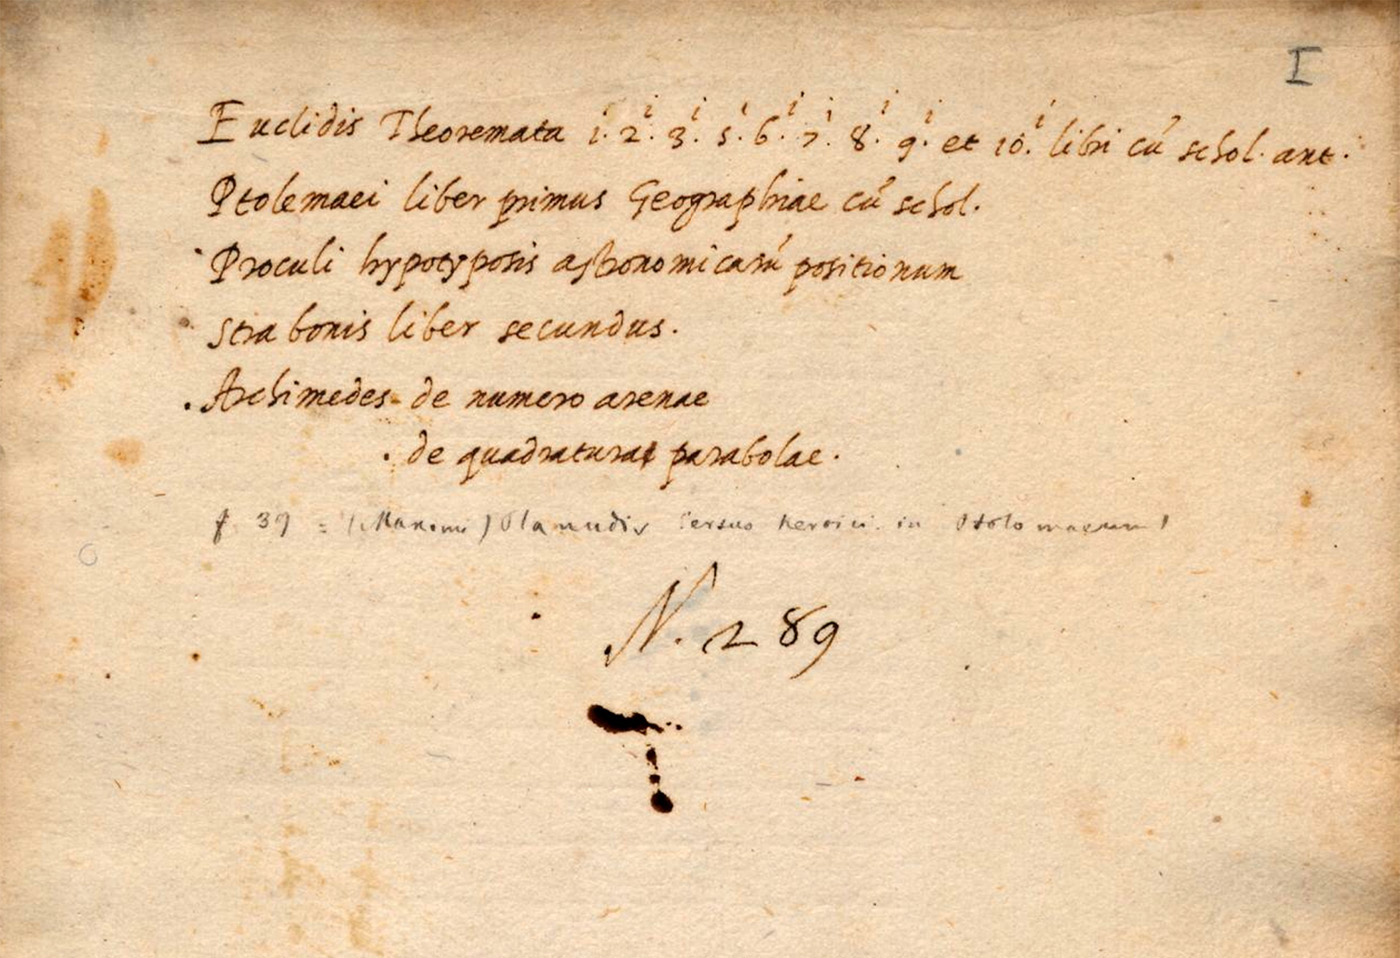 I
Euclidis Theoremata 1.i 2.i 3.i 5.i 6.i 7.i 8.i 9.i et 10.i libri cū schol. ant.
Ptolemaei liber primus Geographiae cū schol.
Proculi hypotyposis astronomicarū positionum
Strabonis liber secundus.
. Archimedes de numero arenae
. de quadratura parabolae.
f. 39 = (Maximi) Planudis versus heroici in Ptolomaeum
N. 289